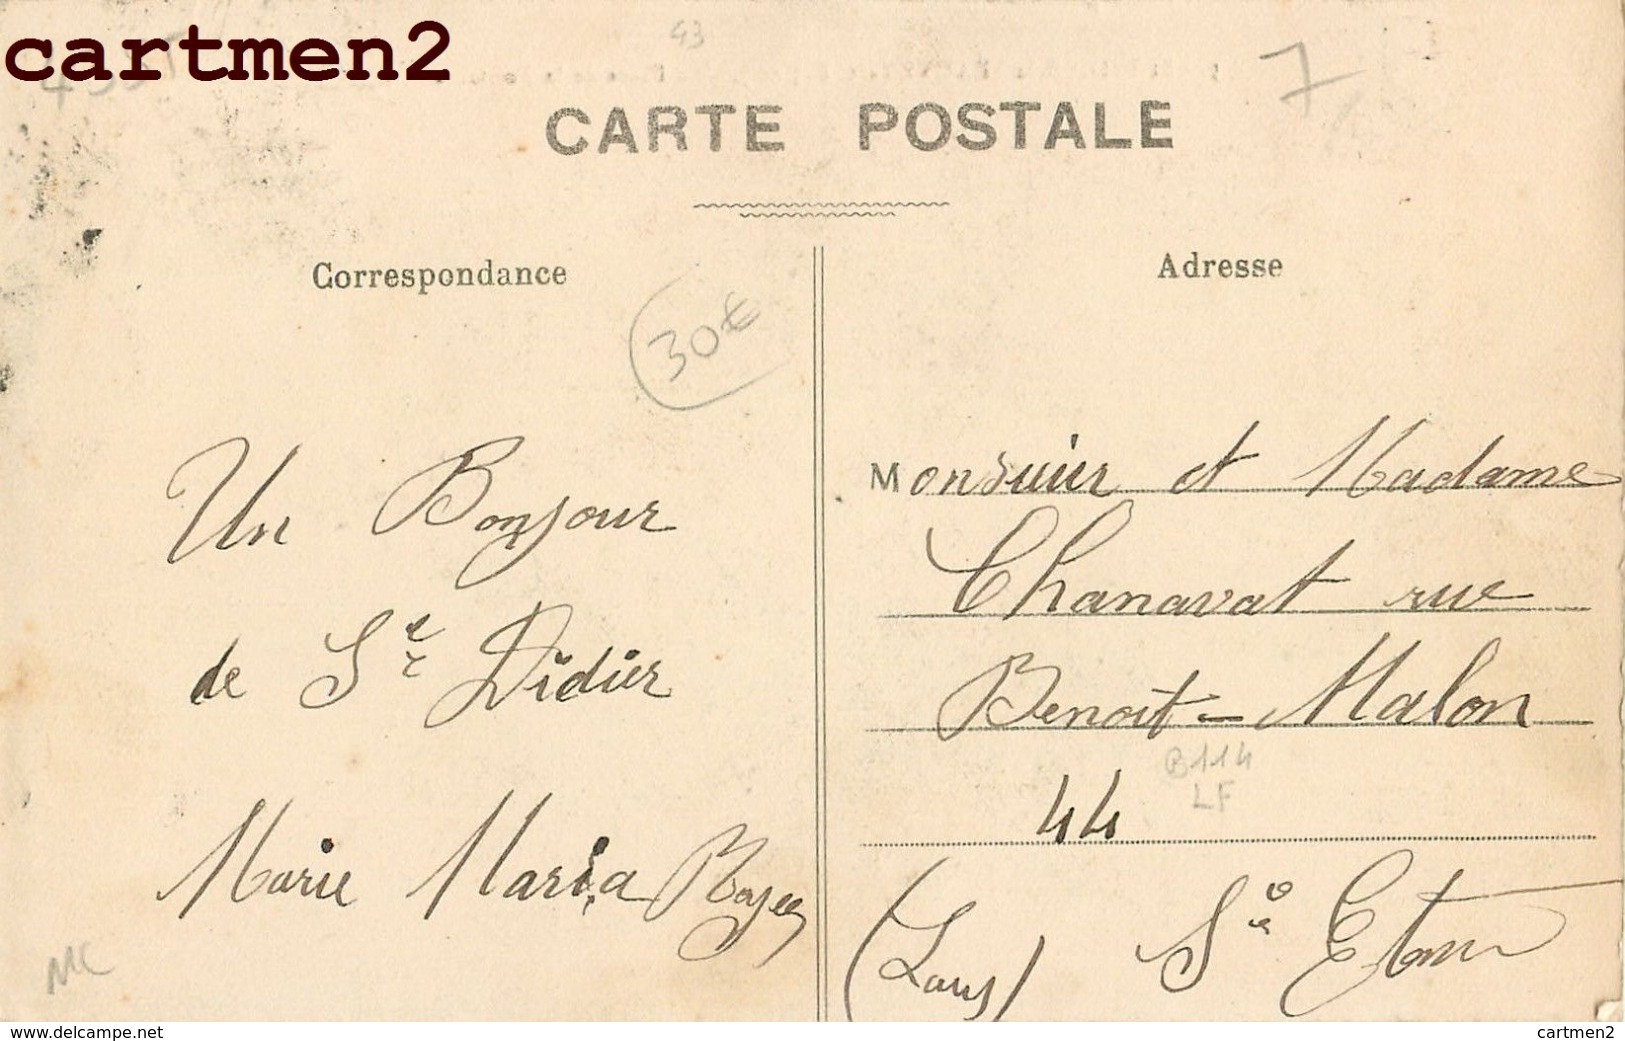 cartmen2
43
7
CARTE POSTALE
Correspondance
Adresse
30€
Un Bonjour
de St Didier
Marie Maria
Monsieur et Madame
Chanavat rue
Benoit-Malon
B114
LF
44
St Etienne
(Loire)
MC
www.delcampe.net
cartmen2